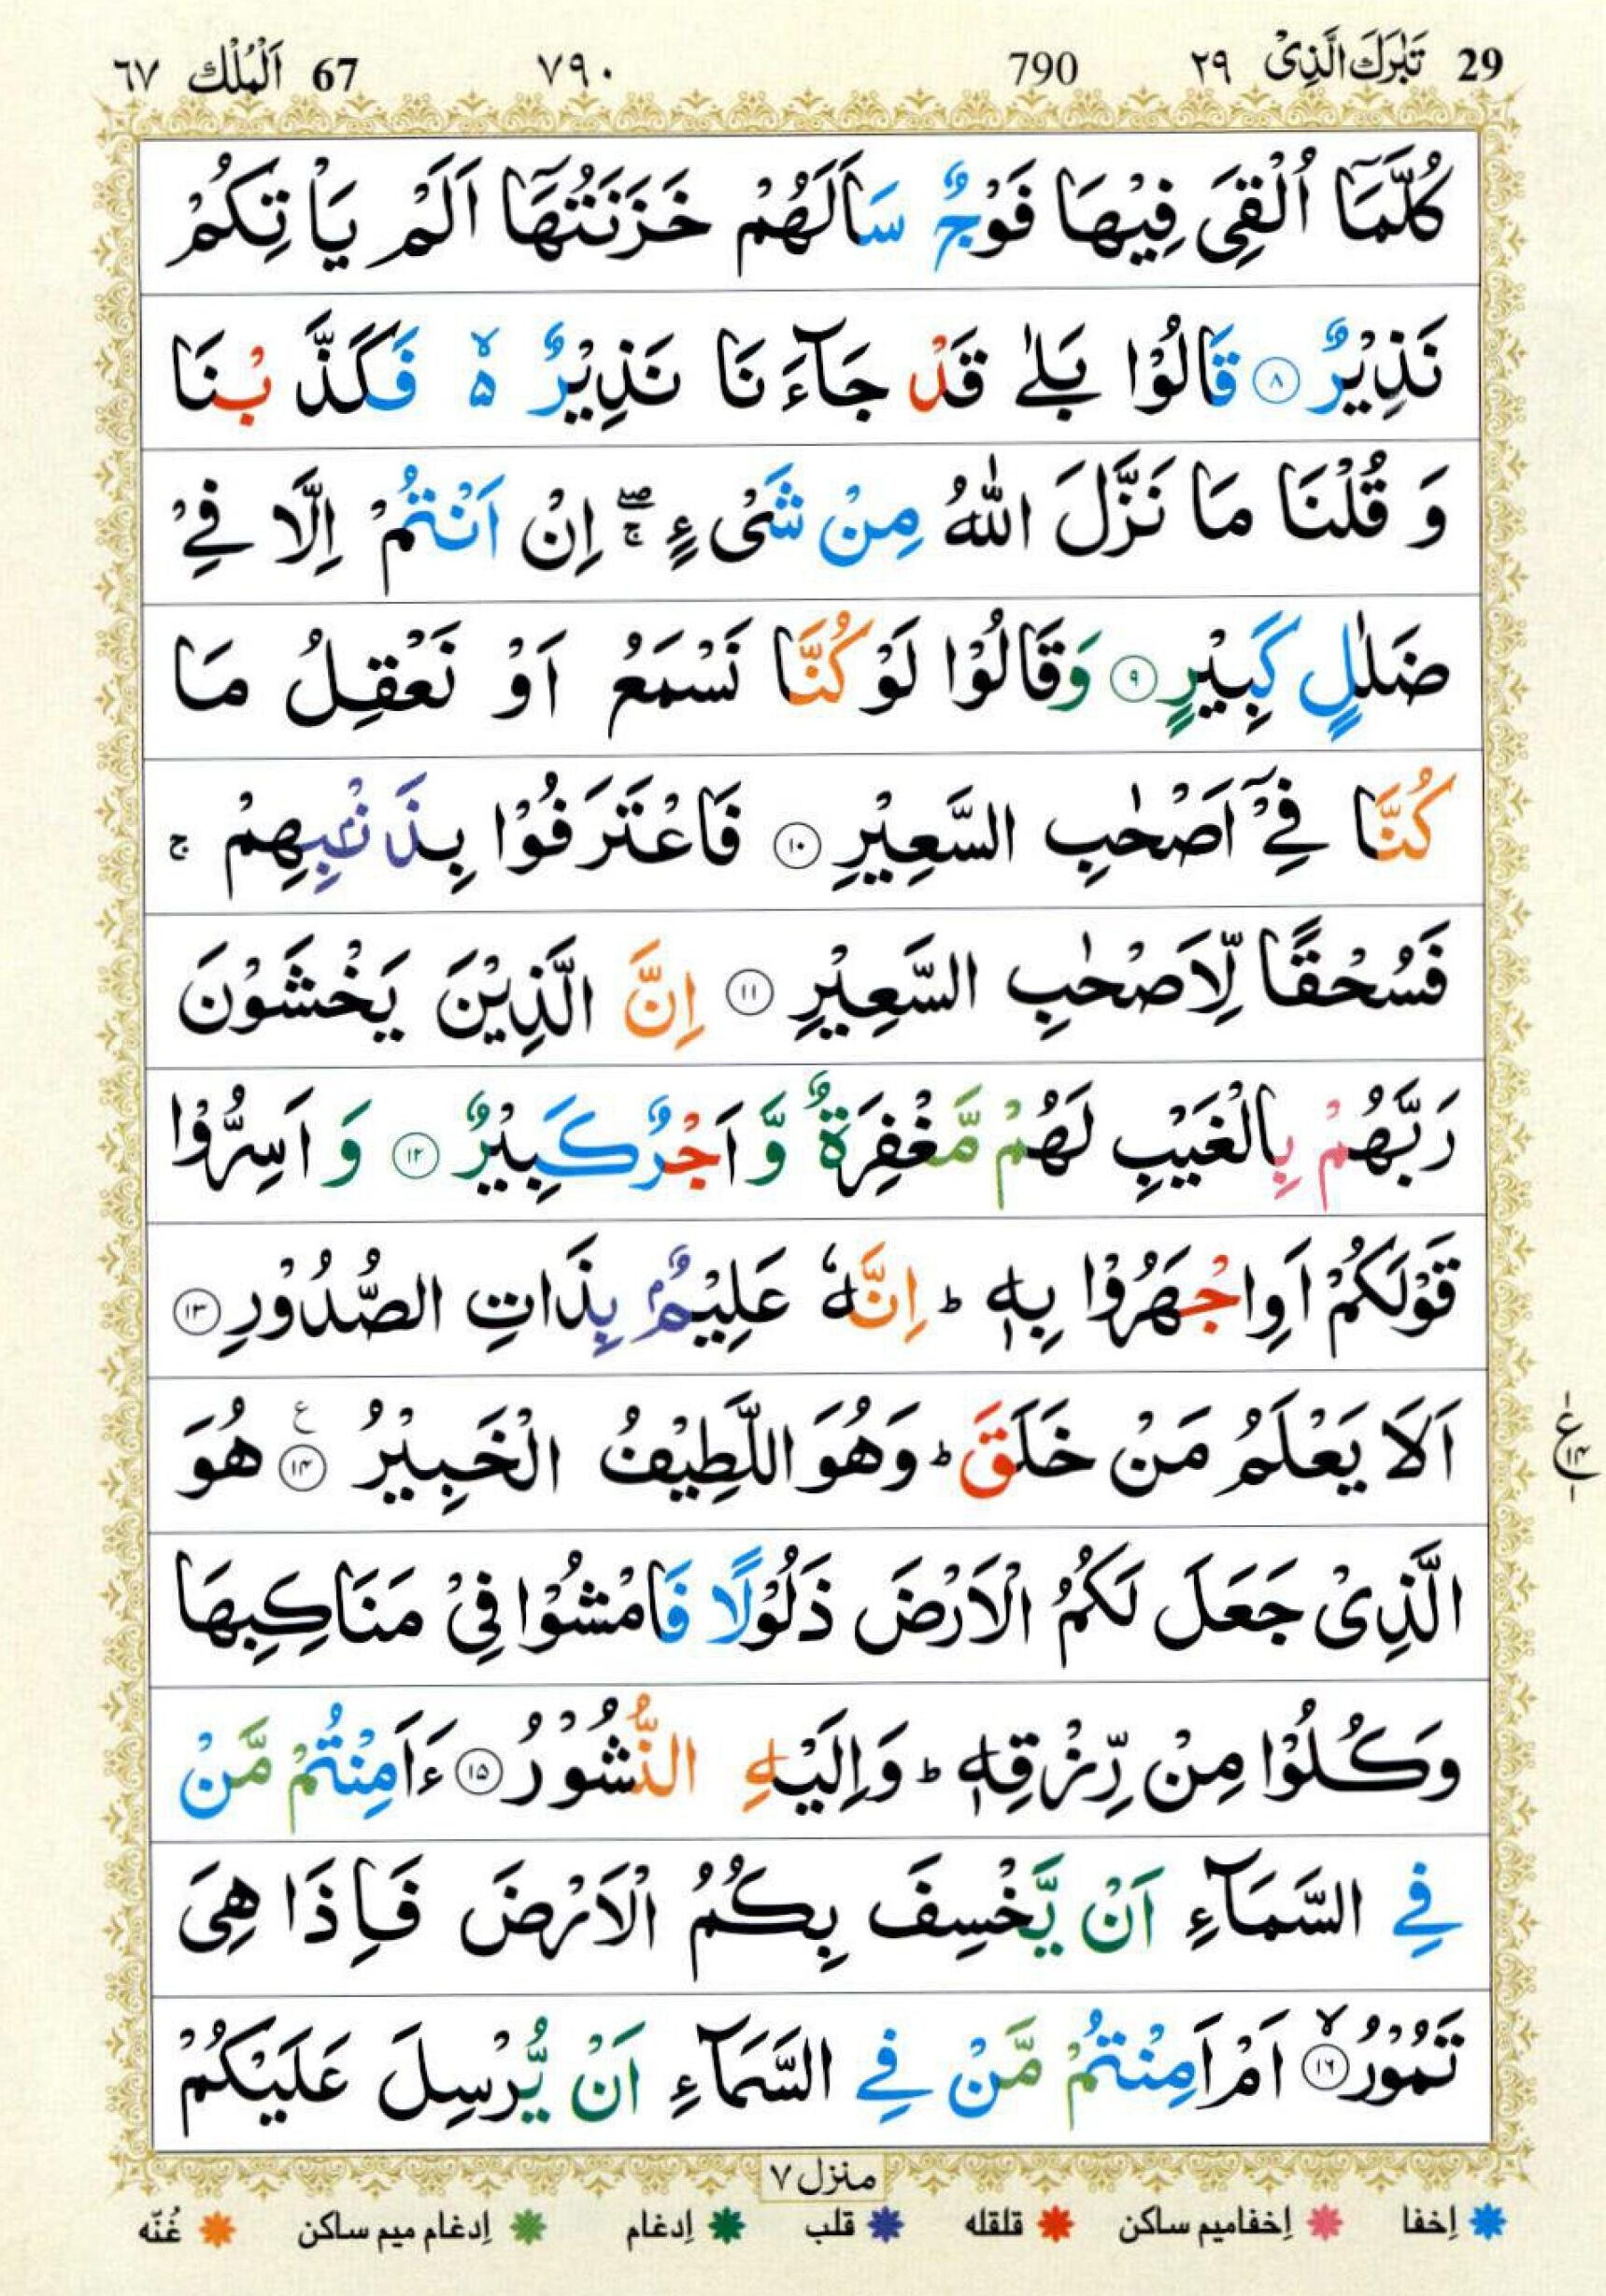 29 تَبٰرَكَ الَّذِیْ ٢٩ 790 ٧٩٠ 67 اَلْمُلْك ٦٧
كُلَّمَاۤ اُلْقِیَ فِیْهَا فَوْجٌ سَاَلَهُمْ خَزَنَتُهَاۤ اَلَمْ یَاْتِكُمْ
نَذِیْرٌ ۝٨ قَالُوْا بَلٰی قَدْ جَآءَنَا نَذِیْرٌ ۙ۬ فَكَذَّبْنَا
وَ قُلْنَا مَا نَزَّلَ اللّٰهُ مِنْ شَیْءٍ ۖۚ اِنْ اَنْتُمْ اِلَّا فِیْ
ضَلٰلٍ كَبِیْرٍ ۝٩ وَقَالُوْا لَوْ كُنَّا نَسْمَعُ اَوْ نَعْقِلُ مَا
كُنَّا فِیْۤ اَصْحٰبِ السَّعِیْرِ ۝١٠ فَاعْتَرَفُوْا بِذَنْۢبِهِمْ ۚ
فَسُحْقًا لِّاَصْحٰبِ السَّعِیْرِ ۝١١ اِنَّ الَّذِیْنَ یَخْشَوْنَ
رَبَّهُمْ بِالْغَیْبِ لَهُمْ مَّغْفِرَةٌ وَّ اَجْرٌ كَبِیْرٌ ۝١٢ وَ اَسِرُّوْا
قَوْلَكُمْ اَوِ اجْهَرُوْا بِهٖ ؕ اِنَّهٗ عَلِیْمٌۢ بِذَاتِ الصُّدُوْرِ ۝١٣
اَلَا یَعْلَمُ مَنْ خَلَقَ ؕ وَهُوَ اللَّطِیْفُ الْخَبِیْرُ ۝١٤ ع هُوَ
ع ١٤
الَّذِیْ جَعَلَ لَكُمُ الْاَرْضَ ذَلُوْلًا فَامْشُوْا فِیْ مَنَاكِبِهَا
وَكُلُوْا مِنْ رِّزْقِهٖ ؕ وَاِلَیْهِ النُّشُوْرُ ۝١٥ ءَاَمِنْتُمْ مَّنْ
فِی السَّمَآءِ اَنْ یَّخْسِفَ بِكُمُ الْاَرْضَ فَاِذَا هِیَ
تَمُوْرُ ۙ۝١٦ اَمْ اَمِنْتُمْ مَّنْ فِی السَّمَآءِ اَنْ یُّرْسِلَ عَلَیْكُمْ
منزل ٧
إخفا إخفامیم ساکن قلقله قلب إدغام إدغام میم ساکن غُنّه